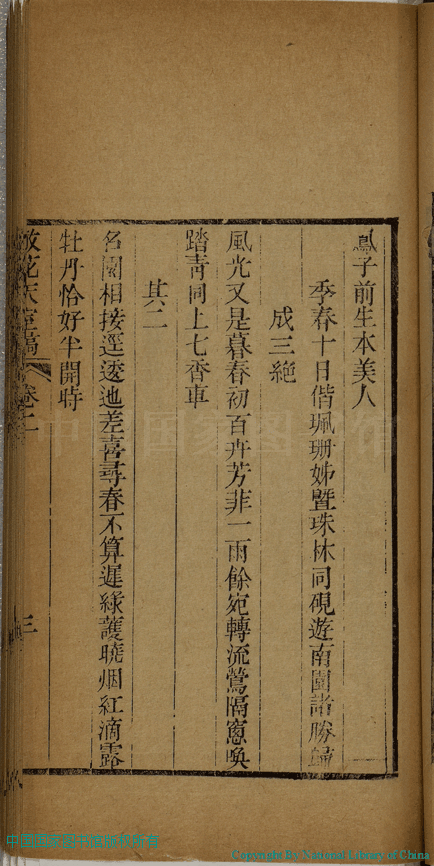 鳳子前生本美人
季春十日偕珮珊姊暨珠林同硯遊南園諸勝歸
成三絶
風光又是暮春初百卉芳菲一雨餘宛轉流鶯隔窗喚
踏青同上七香車
其二
名園相接逕逶迤差喜尋春不算遲緑護曉烟紅滴露
牡丹恰好半開時
散花天室稿 卷二
三
中国国家图书馆
Copyright By National Library of China